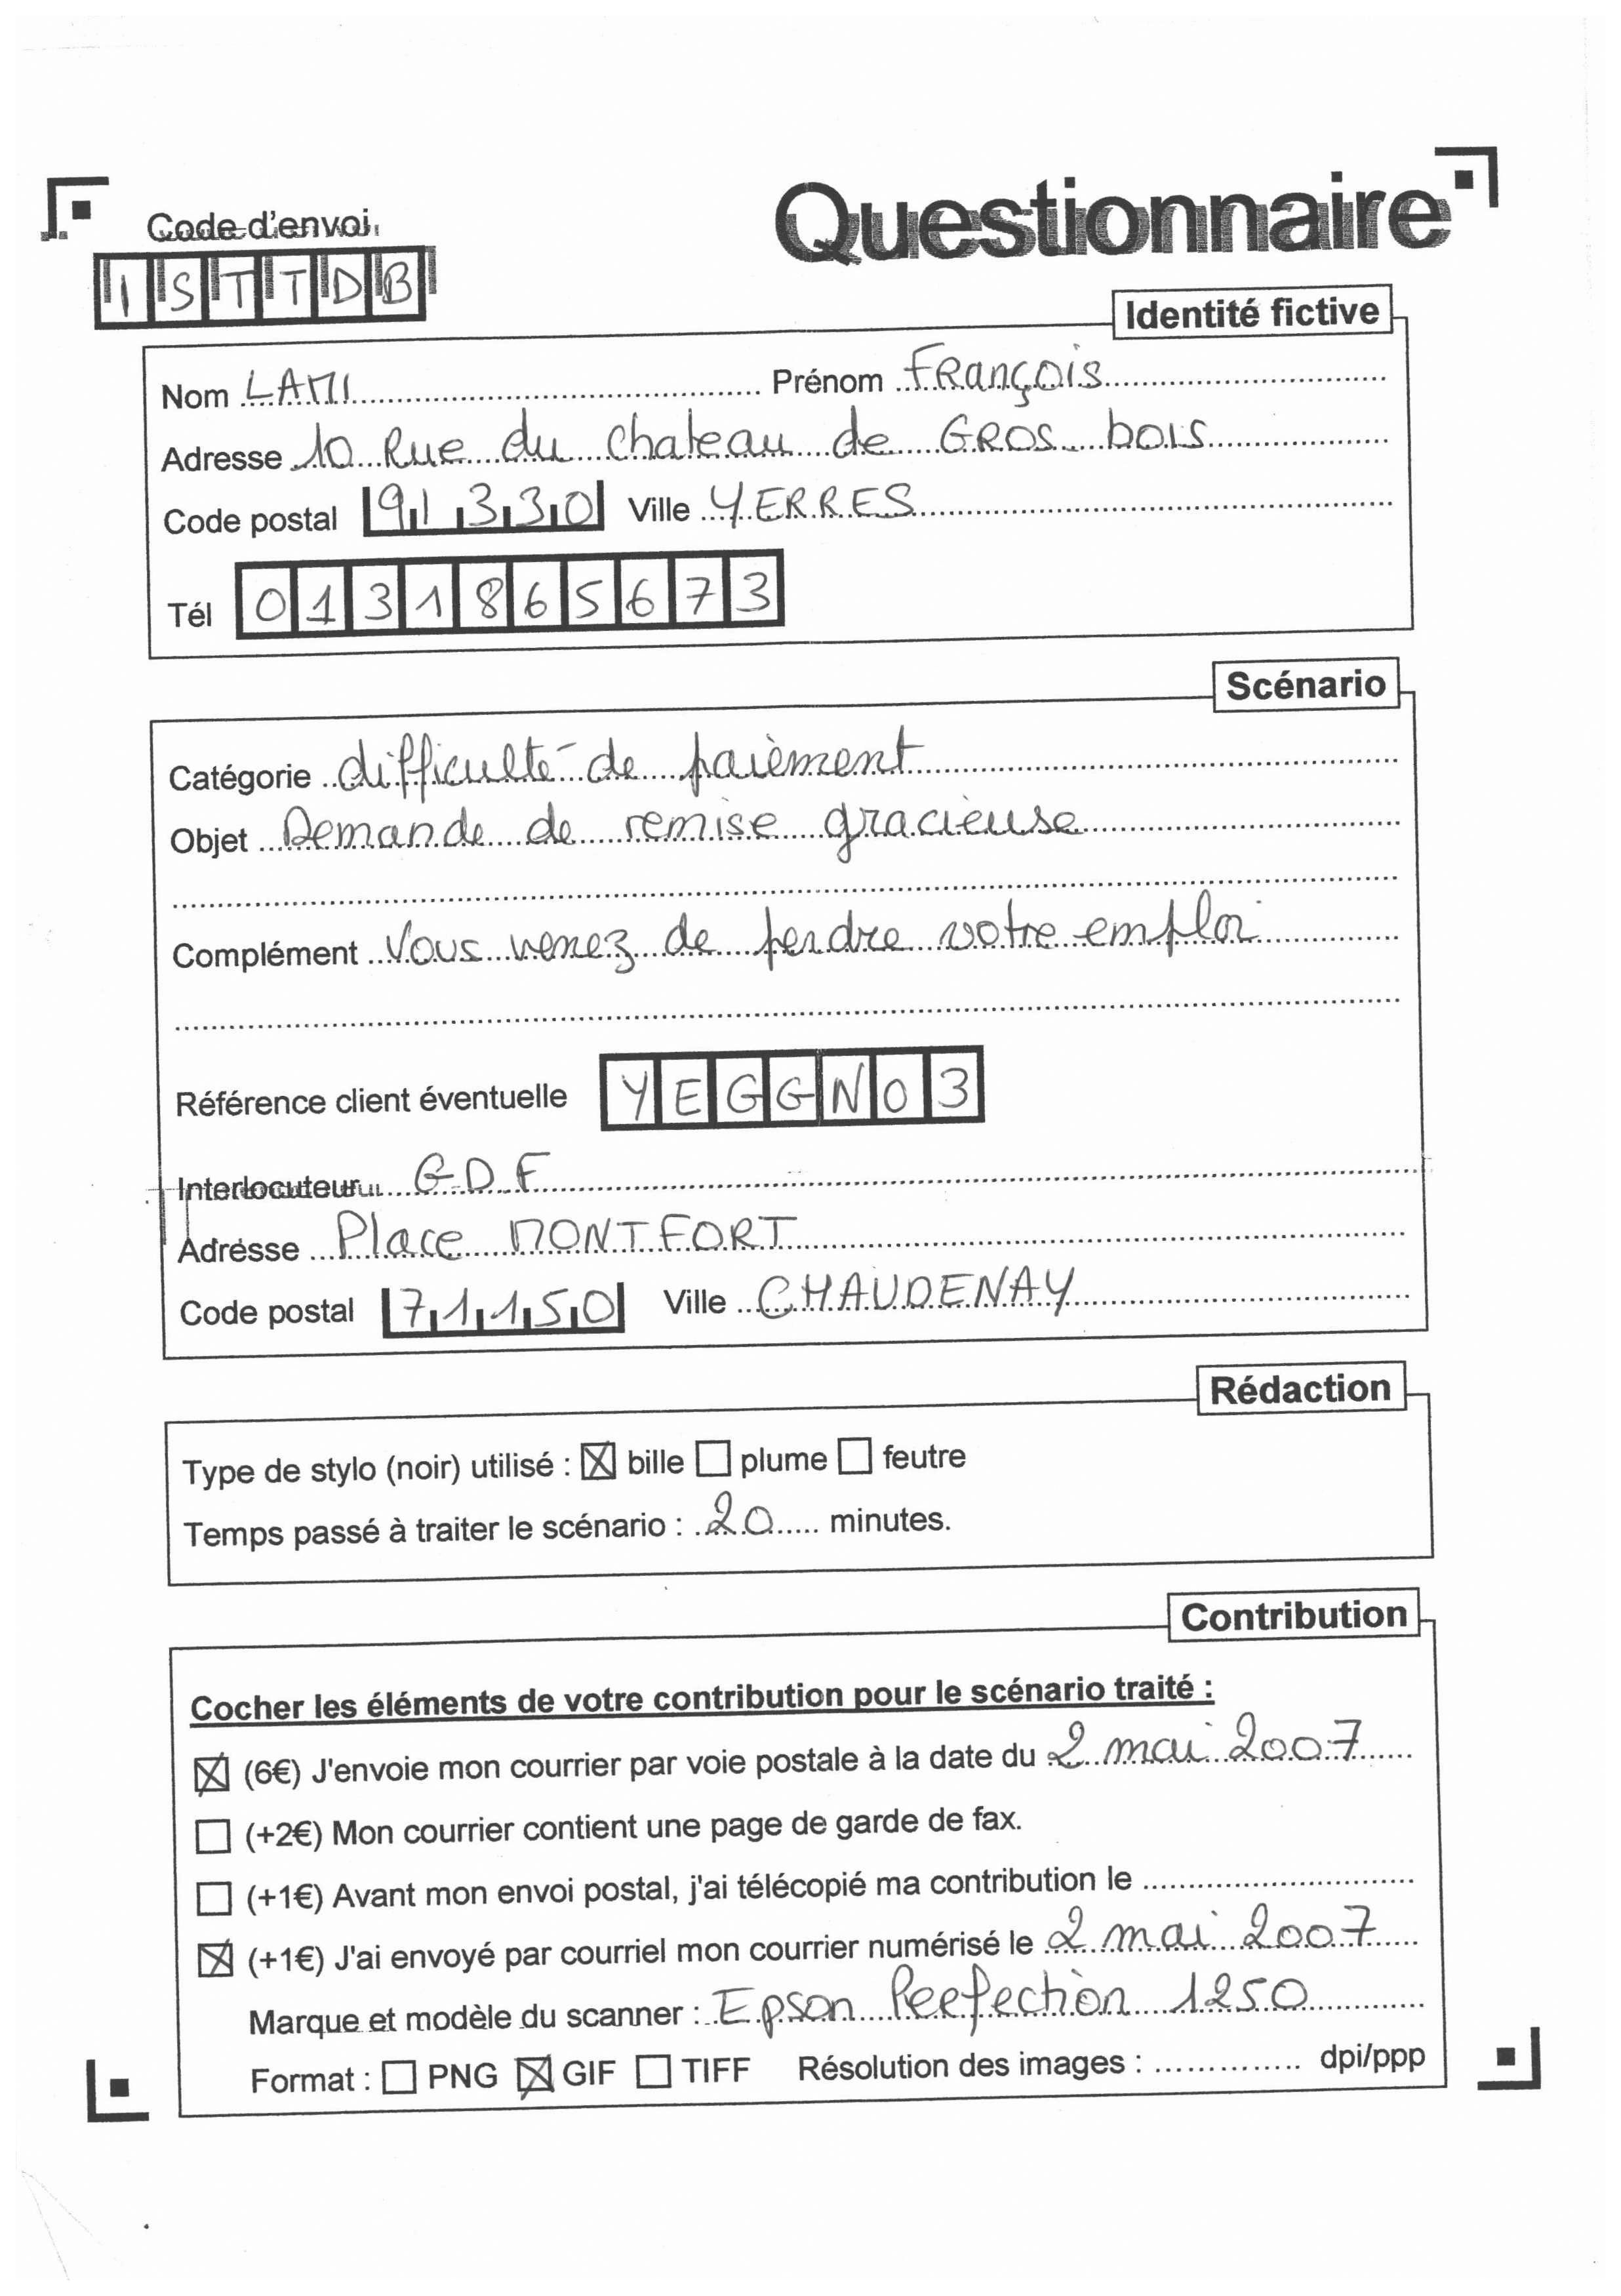 Questionnaire
Code d'envoi
ISTTDB
Identité fictive
Nom LAMI Prénom François
Adresse 10 Rue du chateau de GROS bois
Code postal 91330 Ville YERRES
Tél 0131865673
Scénario
Catégorie difficulté de paièment
Objet Demande de remise gracieuse
Complément Vous venez de perdre votre emploi
Référence client éventuelle YEGGN03
Interlocuteur GDF
Adresse Place MONTFORT
Code postal 71150 Ville CHAUDENAY
Rédaction
Type de stylo (noir) utilisé : ☒ bille ☐ plume ☐ feutre
Temps passé à traiter le scénario : 20 minutes.
Contribution
Cocher les éléments de votre contribution pour le scénario traité :
☒ (6€) J'envoie mon courrier par voie postale à la date du 2 mai 2007
☐ (+2€) Mon courrier contient une page de garde de fax.
☐ (+1€) Avant mon envoi postal, j'ai télécopié ma contribution le
☒ (+1€) J'ai envoyé par courriel mon courrier numérisé le 2 mai 2007
Marque et modèle du scanner : Epson Perfection 1250
Format : ☐ PNG ☒ GIF ☐ TIFF Résolution des images : dpi/ppp